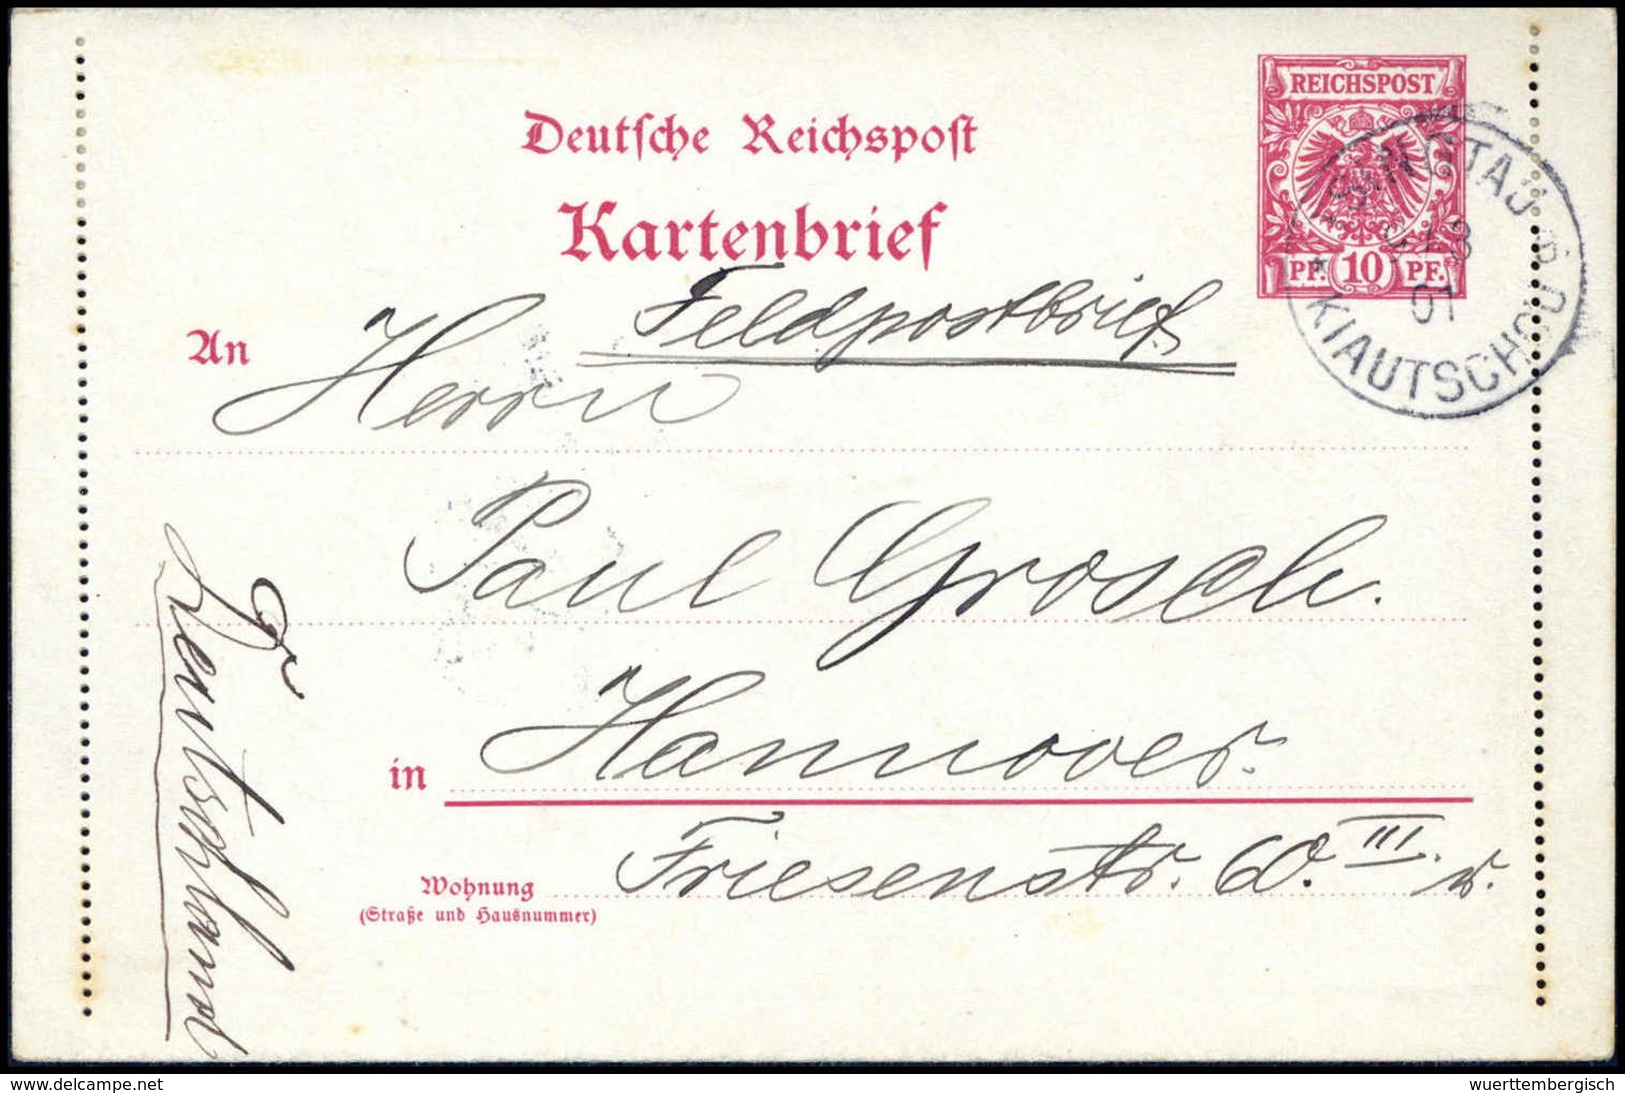 REICHSPOST
Deutsche Reichspost
Kartenbrief
PF. 10 PF.
TSINGTAU
01
* KIAUTSCHOU
Feldpostbrief
An Herrn
Paul Grosch.
in Hannover.
Friesenstr. 60. III. r.
Wohnung
(Straße und Hausnummer)
Deutschland
delcampe.net
wuerttembergisch